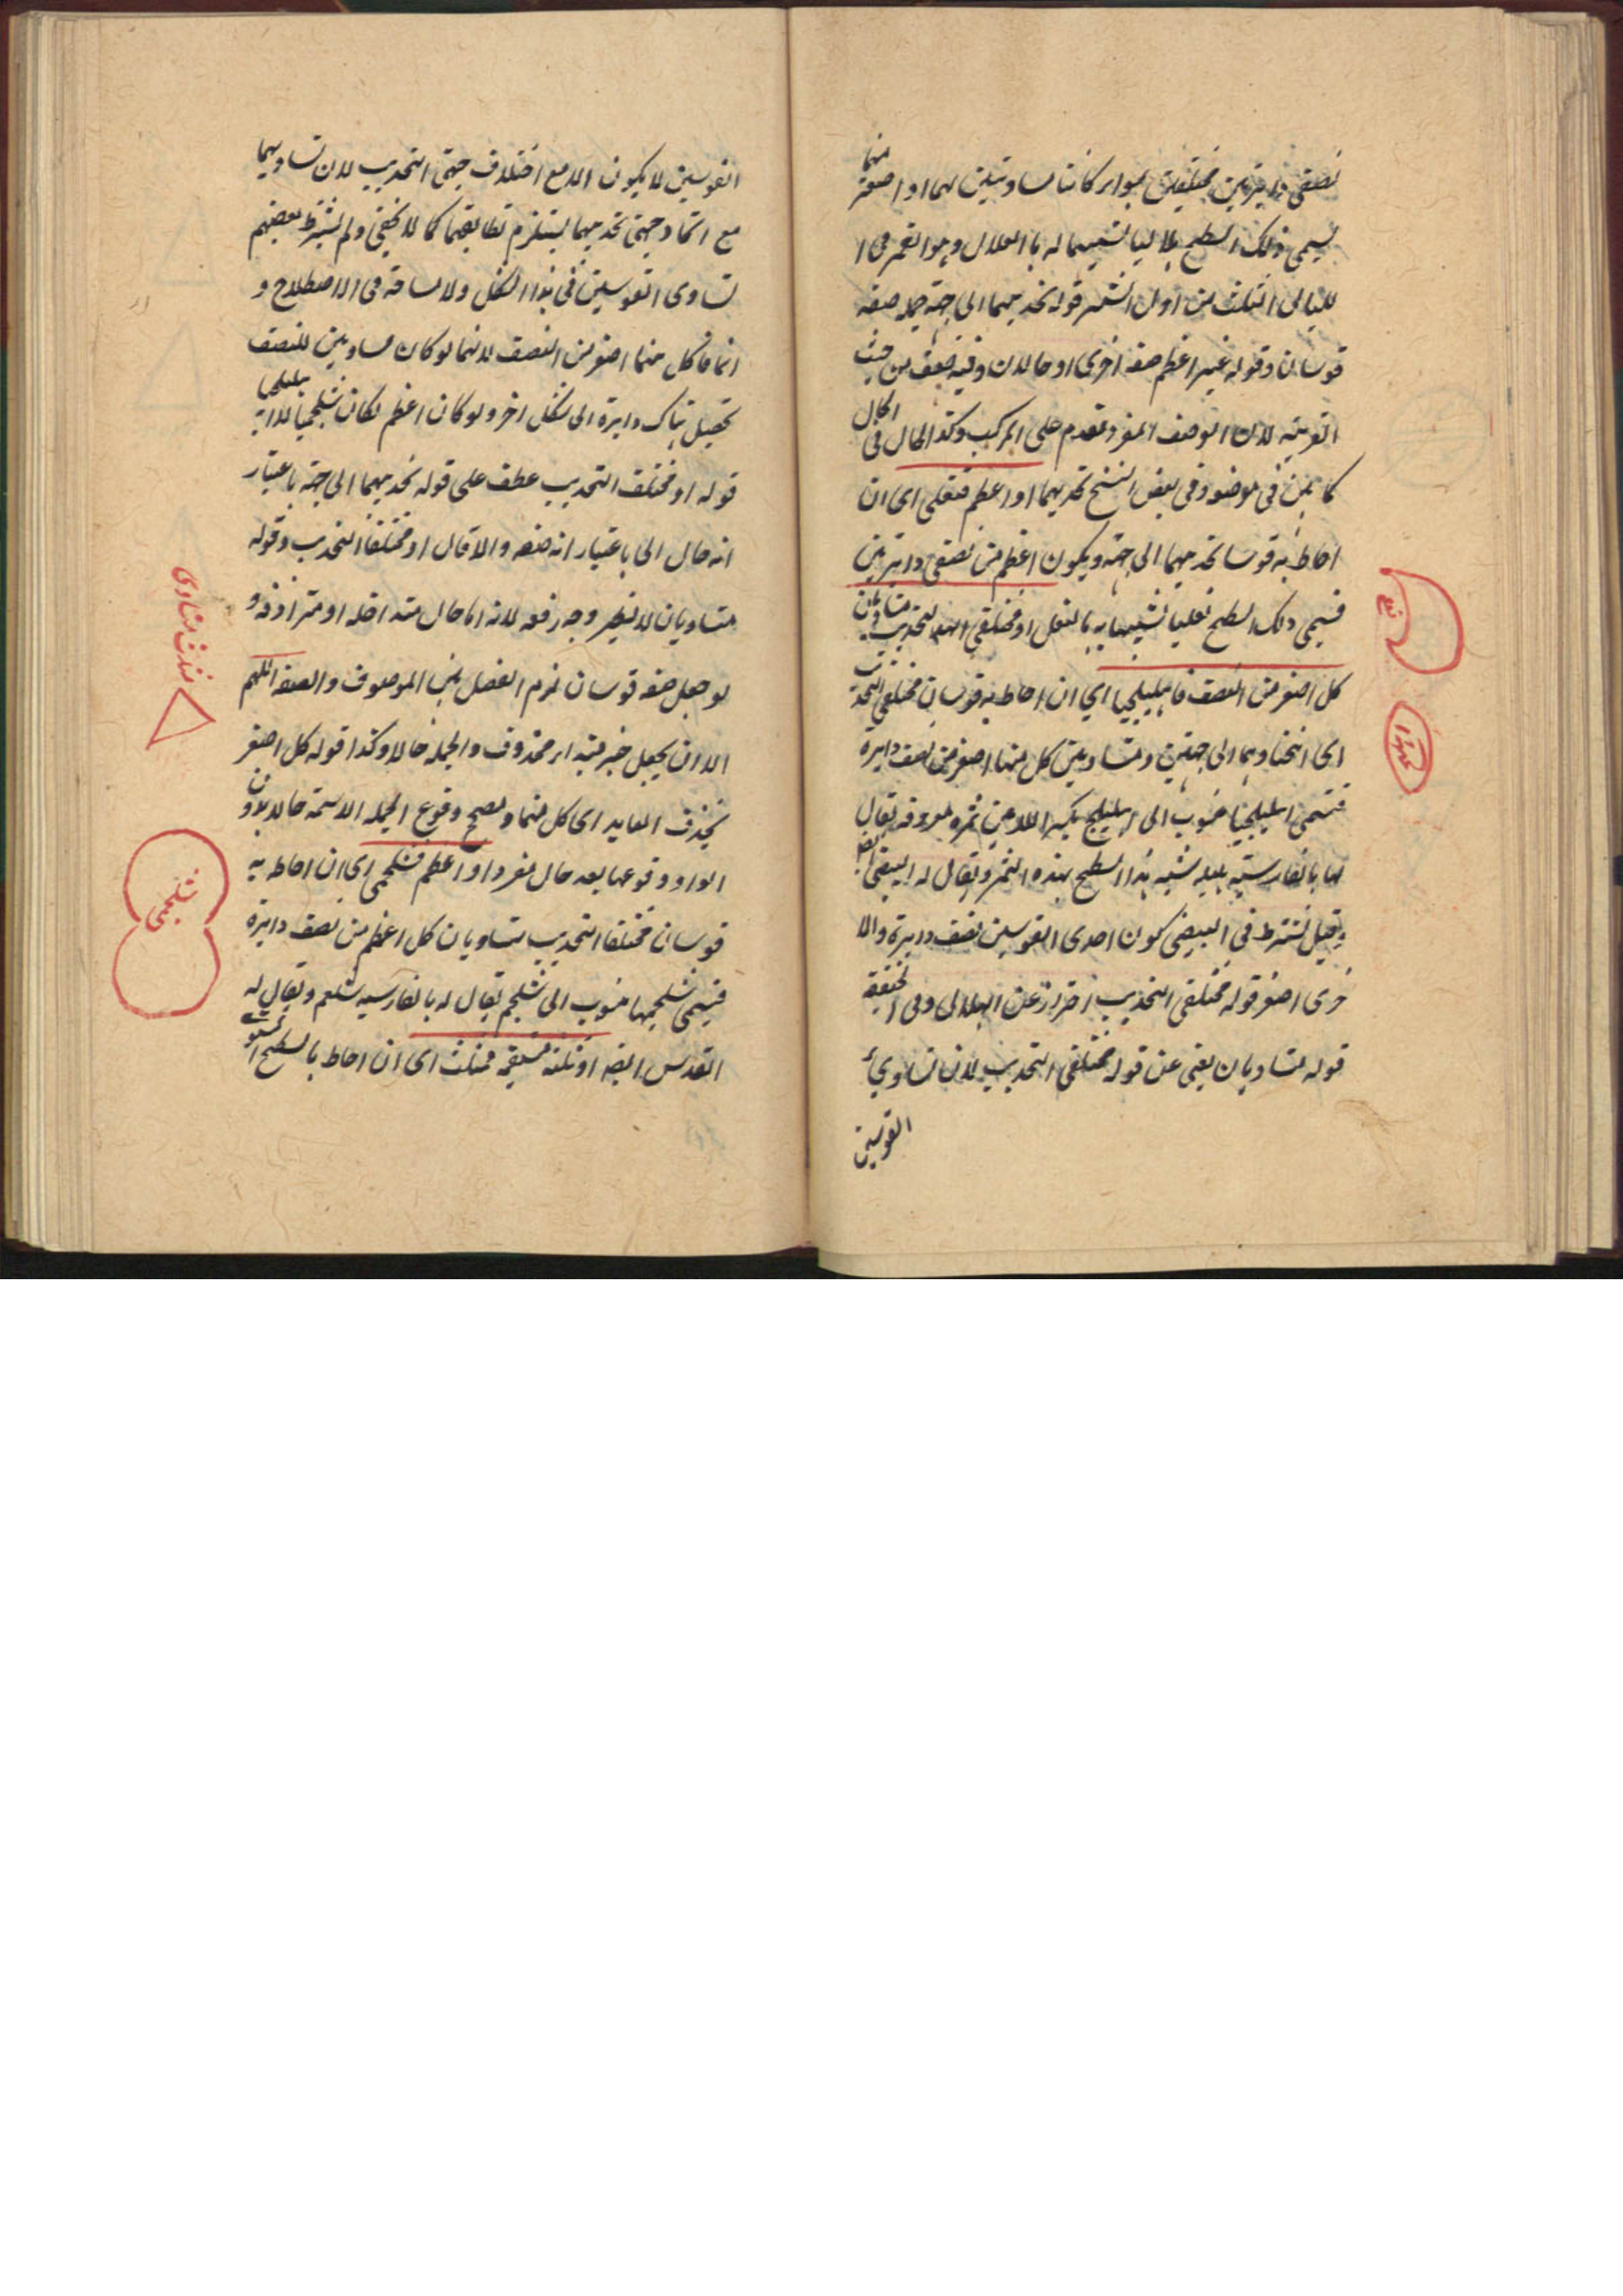 نصفى دايرتين مختلفتين سواء كانتا مساويتين لهما او اصغر منهما
يسمى ذلك السطح هلاليا تشبيها له بالهلال وهو القمر فى ا
لليالى الثلث من اول الشهر قوله تحديبهما الى جهة جملة صفة
قوسان وقوله غير اعظم صفة اخرى او حالان وفيه ضعف من حيث
العربية لان الوصف المفرد مقدم على المركب وكذا الحال فى الحال
كما بين فى موضعه وفى بعض النسخ تحديبهما او اعظم فنعلى اى ان
احاط به قوسا تحديبهما الى جهة ويكون اعظم من نصفى دايرتين
فيسمى ذلك السطح نعليا تشبيها به بالنعل او مختلفى التحديب متساويان
كل اصغر من النصف فاهليلجيا اي ان احاط به قوسان مختلفى التحديب
اى انحناوهما الى جهتين ومتساويين كل منهما اصغر من نصف دايرة
فيسمى اهليلجيا منسوب الى اهليلج بكسر اللامين ثمرة معروفة يقال
لها بالفارسية هليله شبه هذا السطح بهذه الثمر ويقال له البيضى ايضا
وقيل يشترط فى البيضى كون احدى القوسين نصف دايرة والا
خرى اصغر قوله مختلفى التحديب احتراز عن الهلالى وفى الحقيقة
قوله متساويان يغنى عن قوله مختلفى التحديب لان تساوي
القوسين
نعلى
القوسين لا يكون الا مع اختلاف جهتى التحديب لان تساويهما
مع اتحاد جهتى تحديبهما يستلزم تطابقهما كما لا يخفى ولم يشترط بعضهم
تساوى القوسين فى هذا الشكل ولا مشاحة فى الاصطلاح و
انما قال كل منهما اصغر من النصف لانهما لو كان مساويين للنصف
تحصيل هناك دايرة الى شكل اخر ولو كان اعظم لكان شلجميا لا اهليلجيا
قوله او مختلف التحديب عطف على قوله تحديبهما الى جهة باعتبار
انه حال الى باعتبار انه صفة والا قال او مختلفا التحدب وقوله
متساويان لا يظهر وجه رفعه لانه اما حال متداخلة او مترادفة و
لو جعل صفة قوسان لزم الفصل بين الموصوف والصفة اللهم
الا ان يجعل خبر مبتداء محذوف والجملة حالا وكذا قوله كل اصغر
بحذف العايد اى كل منهما ويصح وقوع الجملة الاسمية حالا بدون
الواو ووقوعها بعد حال مفرد او اعظم فشلجمى اى ان احاط به
قوسان مختلفا التحديب متساويان كل اعظم من نصف دايرة
فيسمى شلجميا منسوب الى شلجم يقال له بالفارسيه شلغم ويقال له
العدسى ايضا او ثلثة مستقيمة فمثلث اى ان احاط بالسطح المستوى
مثلث متساوى
شلجمى